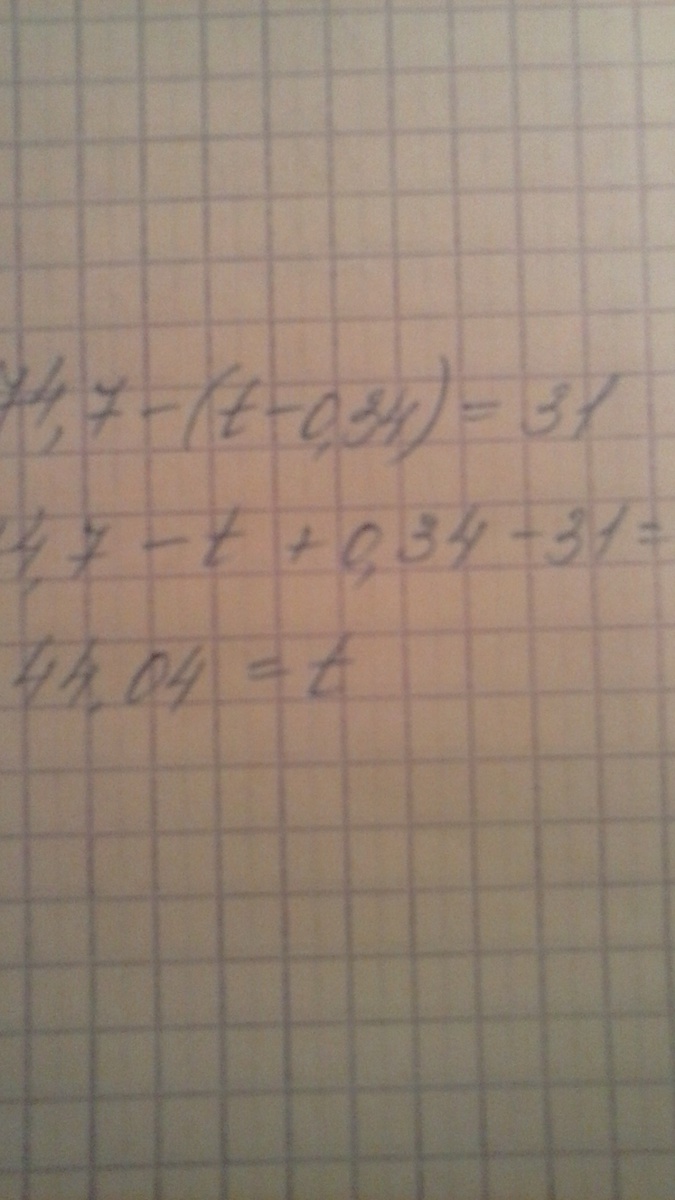 74,7-(t-0,34)=31
4,7-t+0,34-31=
44,04=t